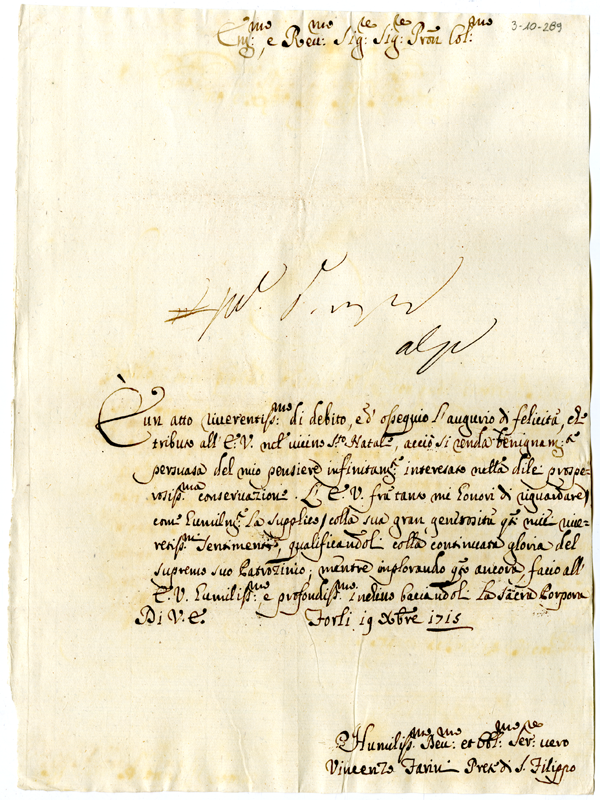 3-10-289
Em:me, e Reu:me Sig:re Sig:re Pron Col:mo
È un atto riuerentiss:mo di debito, ed ossequio l'augurio di felicità, che
tributo all'E. V. nel uicino Sto Natale, acciò si renda benignamte
persuasa del mio pensiere infinitamte interesato nella di lei prospe-
rosiss:ma conseruazione. L'E. V. frà tanto mi honori di riguardare,
come humilmte La supplico, colla sua gran generosità qti miei riue-
retiss:mi sentimenti, qualificandoli colla continuata gloria del
supremo suo Patrozinio; mentre implorando qto ancora, facio all'
E. V. humiliss:mo, e profondiss:mo inchino baciandole La Sacra Porpora
Di V. E. Forlì 19 Xbre 1715
Humiliss:mo Deu:mo et obl:mo Ser:re uero
Vincenzo Farini Prete di S. Filippo